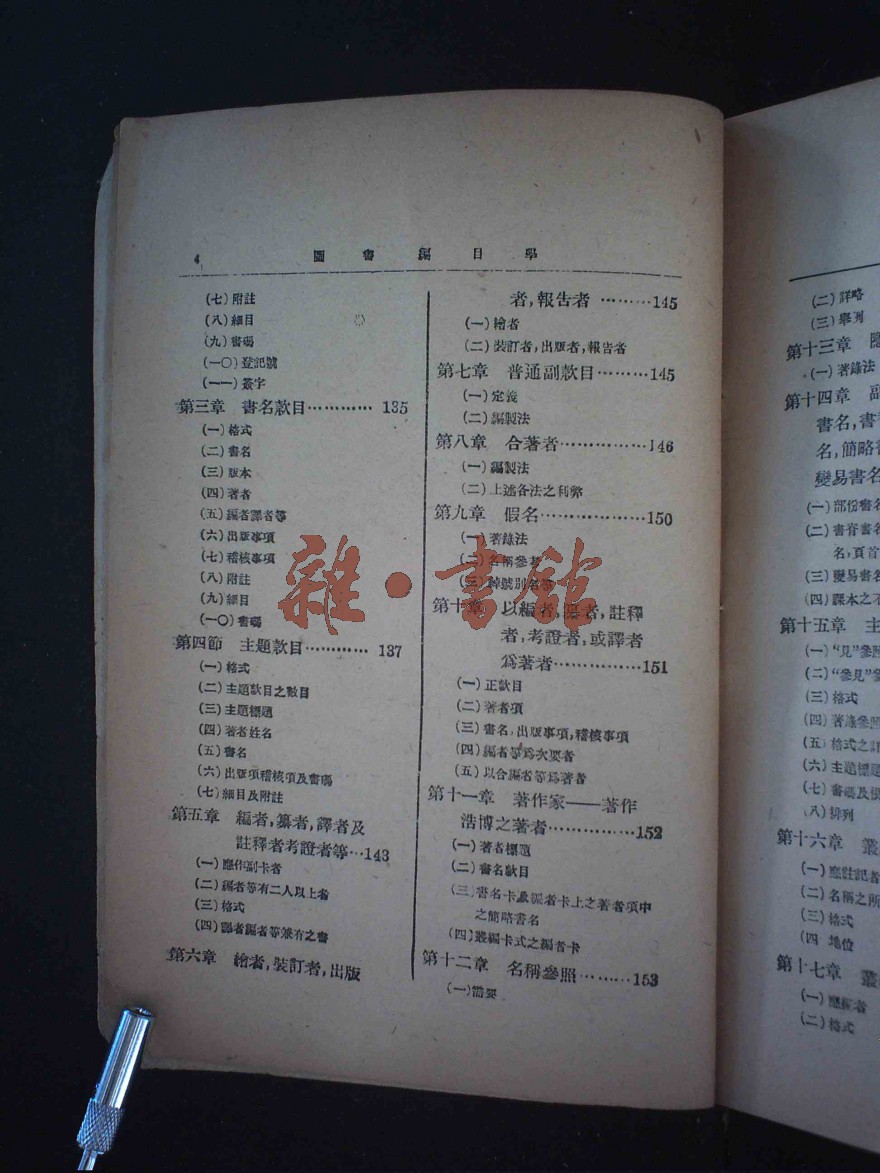 4 圖書編目學
(七)附註
(八)細目
(九)書碼
(一〇)登記號
(一一)簽字
第三章 書名款目………… 135
(一)格式
(二)書名
(三)版本
(四)著者
(五)編者譯者等
(六)出版事項
(七)稽核事項
(八)附註
(九)細目
(一〇)書碼
第四節 主題款目………… 137
(一)格式
(二)主題款目之數目
(三)主題標題
(四)著者姓名
(五)書名
(六)出版項稽核項及書碼
(七)細目及附註
第五章 編者,纂者,譯者及
註釋者考證者等…143
(一)應作副卡者
(二)編者等有二人以上者
(三)格式
(四)譯者編者等兼有之書
第六章 繪者,裝訂者,出版
者,報告者………145
(一)繪者
(二)裝訂者,出版者,報告者
第七章 普通副款目………145
(一)定義
(二)編製法
第八章 合著者……………146
(一)編製法
(二)上述各法之利弊
第九章 假名………………150
(一)著錄法
(二)名稱參考
(三)綽號別名等
第十章 以編者,纂者,註釋
者,考證者,或譯者
爲著者……………151
(一)正款目
(二)著者項
(三)書名,出版事項,稽核事項
(四)編者等爲次要者
(五)以合編者等爲著者
第十一章 著作家——著作
浩博之著者……………152
(一)著者標題
(二)書名款目
(三)書名卡及編者卡上之著者項中
之簡略書名
(四)叢編卡式之編者卡
第十二章 名稱參照………153
(一)需要
雜·書館
(二)詳略
(三)舉列
第十三章
(一)著錄法
第十四章 副
書名,書
名,簡略書
變易書名
(一)部份書名
(二)書脊書名
名,頁首
(三)變易書名
(四)課本之不
第十五章 主
(一)“見”參照
(二)“參見”參
(三)格式
(四)著錄參照
(五)格式之詳
(六)主題標題
(七)書碼及
(八)排列
第十六章 叢
(一)應註記者
(二)名稱之所
(三)格式
(四 地位
第十七章 叢
(一)應編者
(二)格式